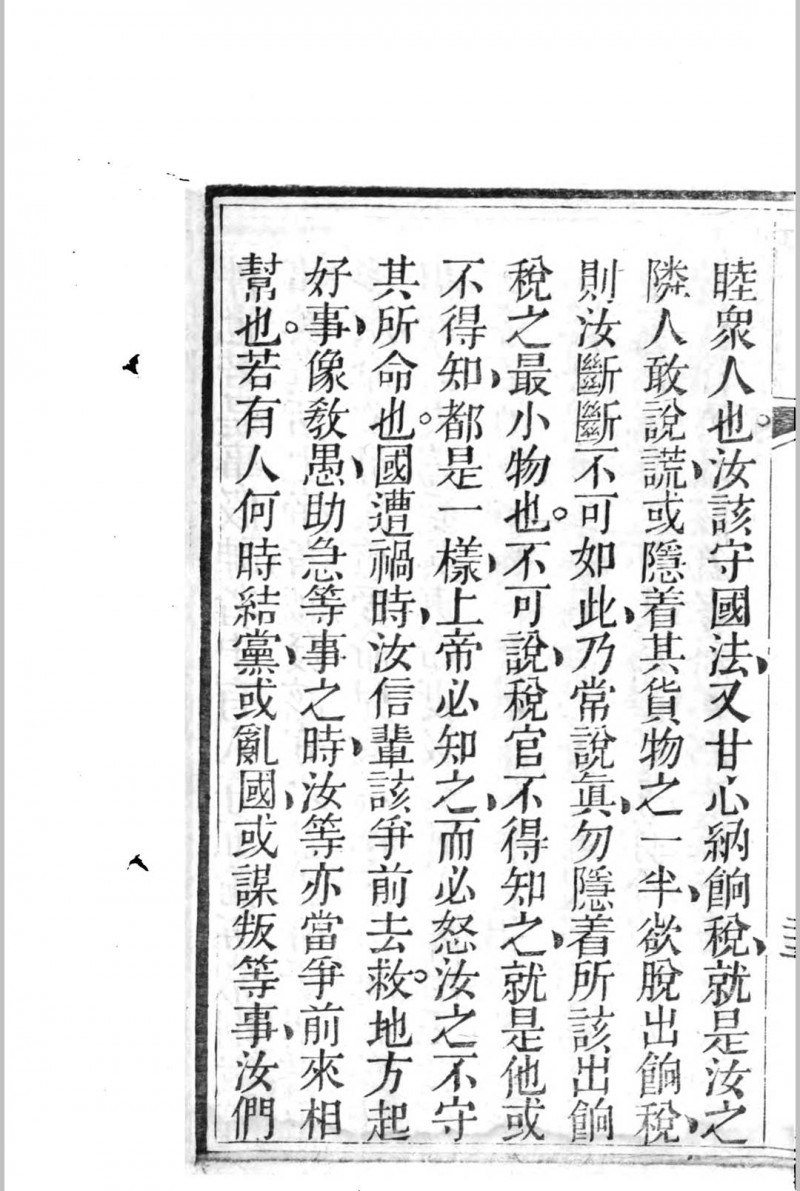 睦衆人也。汝該守國法、又甘心納餉稅、就是汝之
隣人敢說謊、或隱着其貨物之一半、欲脫出餉稅、
則汝斷斷不可如此、乃常說眞、勿隱着所該出餉
稅之最小物也。不可說、稅官不得知之、就是他或
不得知、都是一樣、上帝必知之、而必怒汝之不守
其所命也。國遭禍時、汝信輩該爭前去救。地方起
好事、像敎愚、助急等事之時、汝等亦當爭前來相
幫也。若有人何時結黨、或亂國、或謀叛等事、汝們